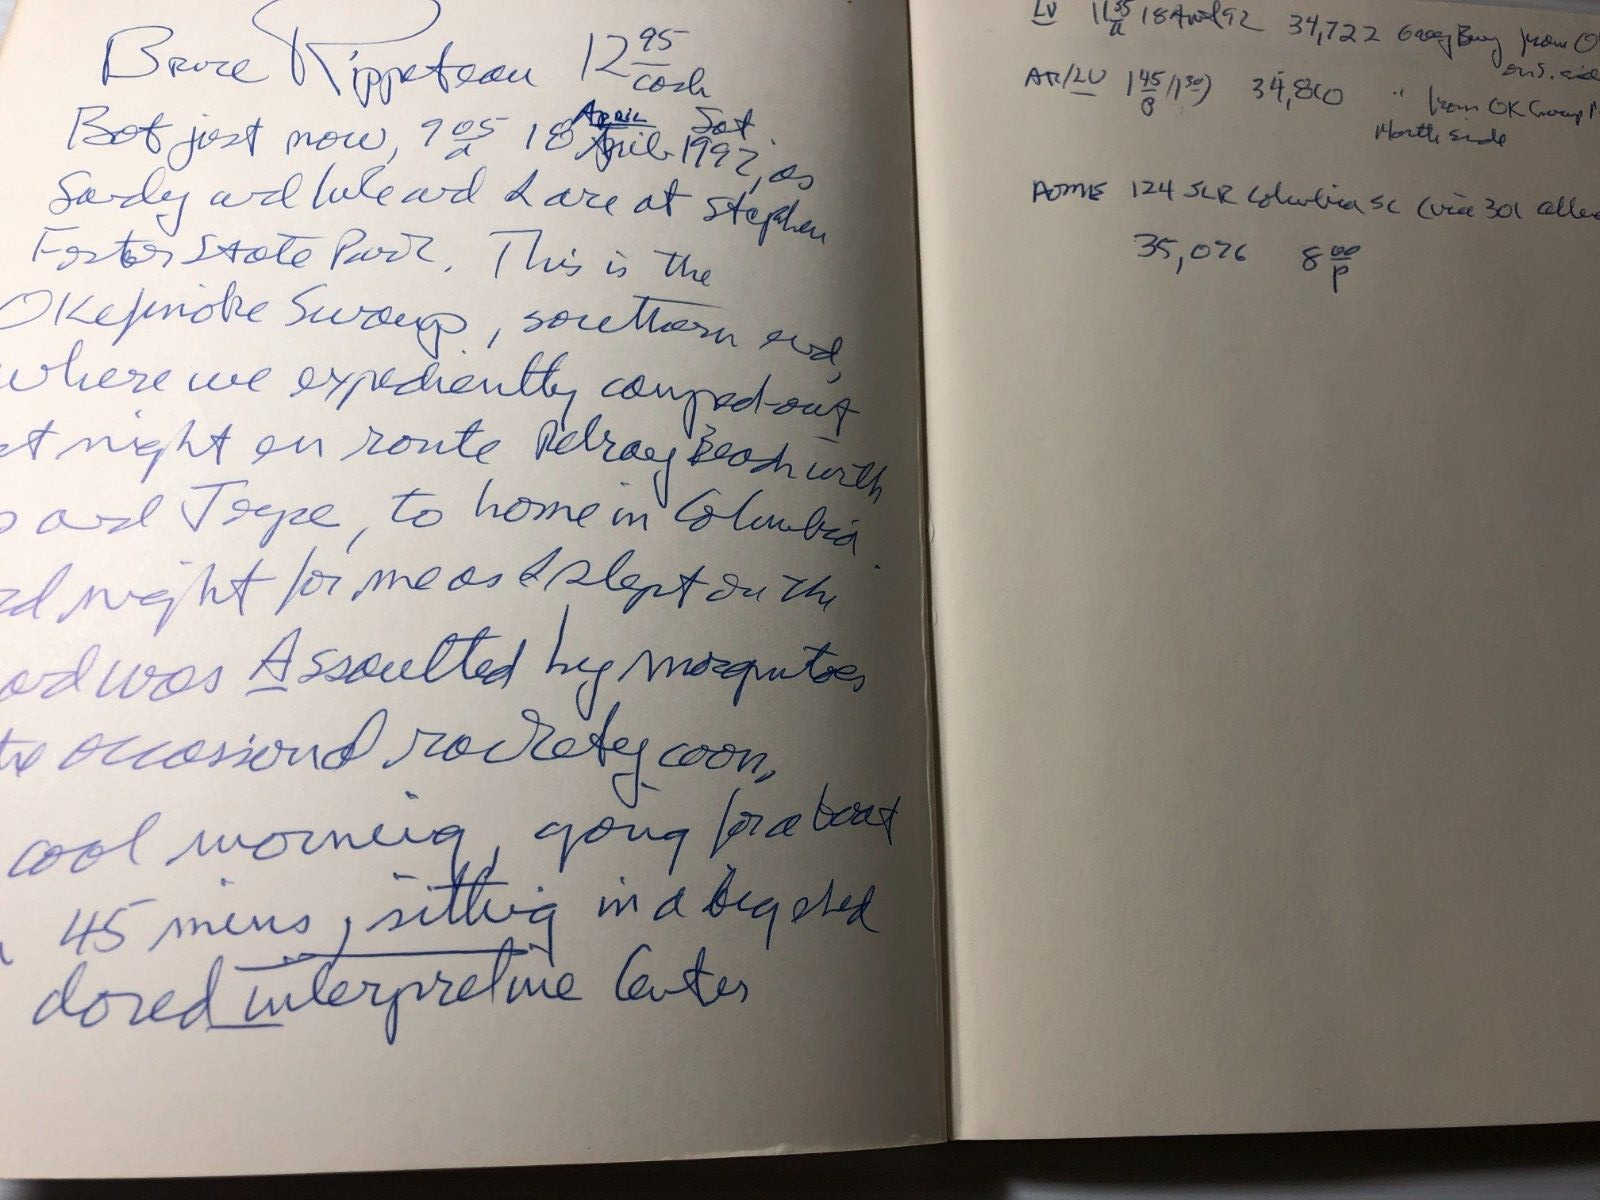 Bruce Rippeteau 12 95 cash
Bot just now, 9 05 a 18 April April Sat 1992, as
Sandy and Luke and I are at Stephen
Foster State Park. This is the
Okefinoke Swamp, southern end,
where we expediently camped-out
st night en route Delray Beach with
and to home in Columbia
rd night for me as I slept on the
and was Assaulted by mosquitoes
the occassional rackety coon,
cool morning, going for a boat
45 mins, sitting in a big shed
dored interpretive Center
LV 11 35 a 18 April 92 34,722 from O
AR/LV 1 45 34,810 " from OK Swamp
North side
Home 124 SLR Columbia SC (via 301
35,076 8 00 p